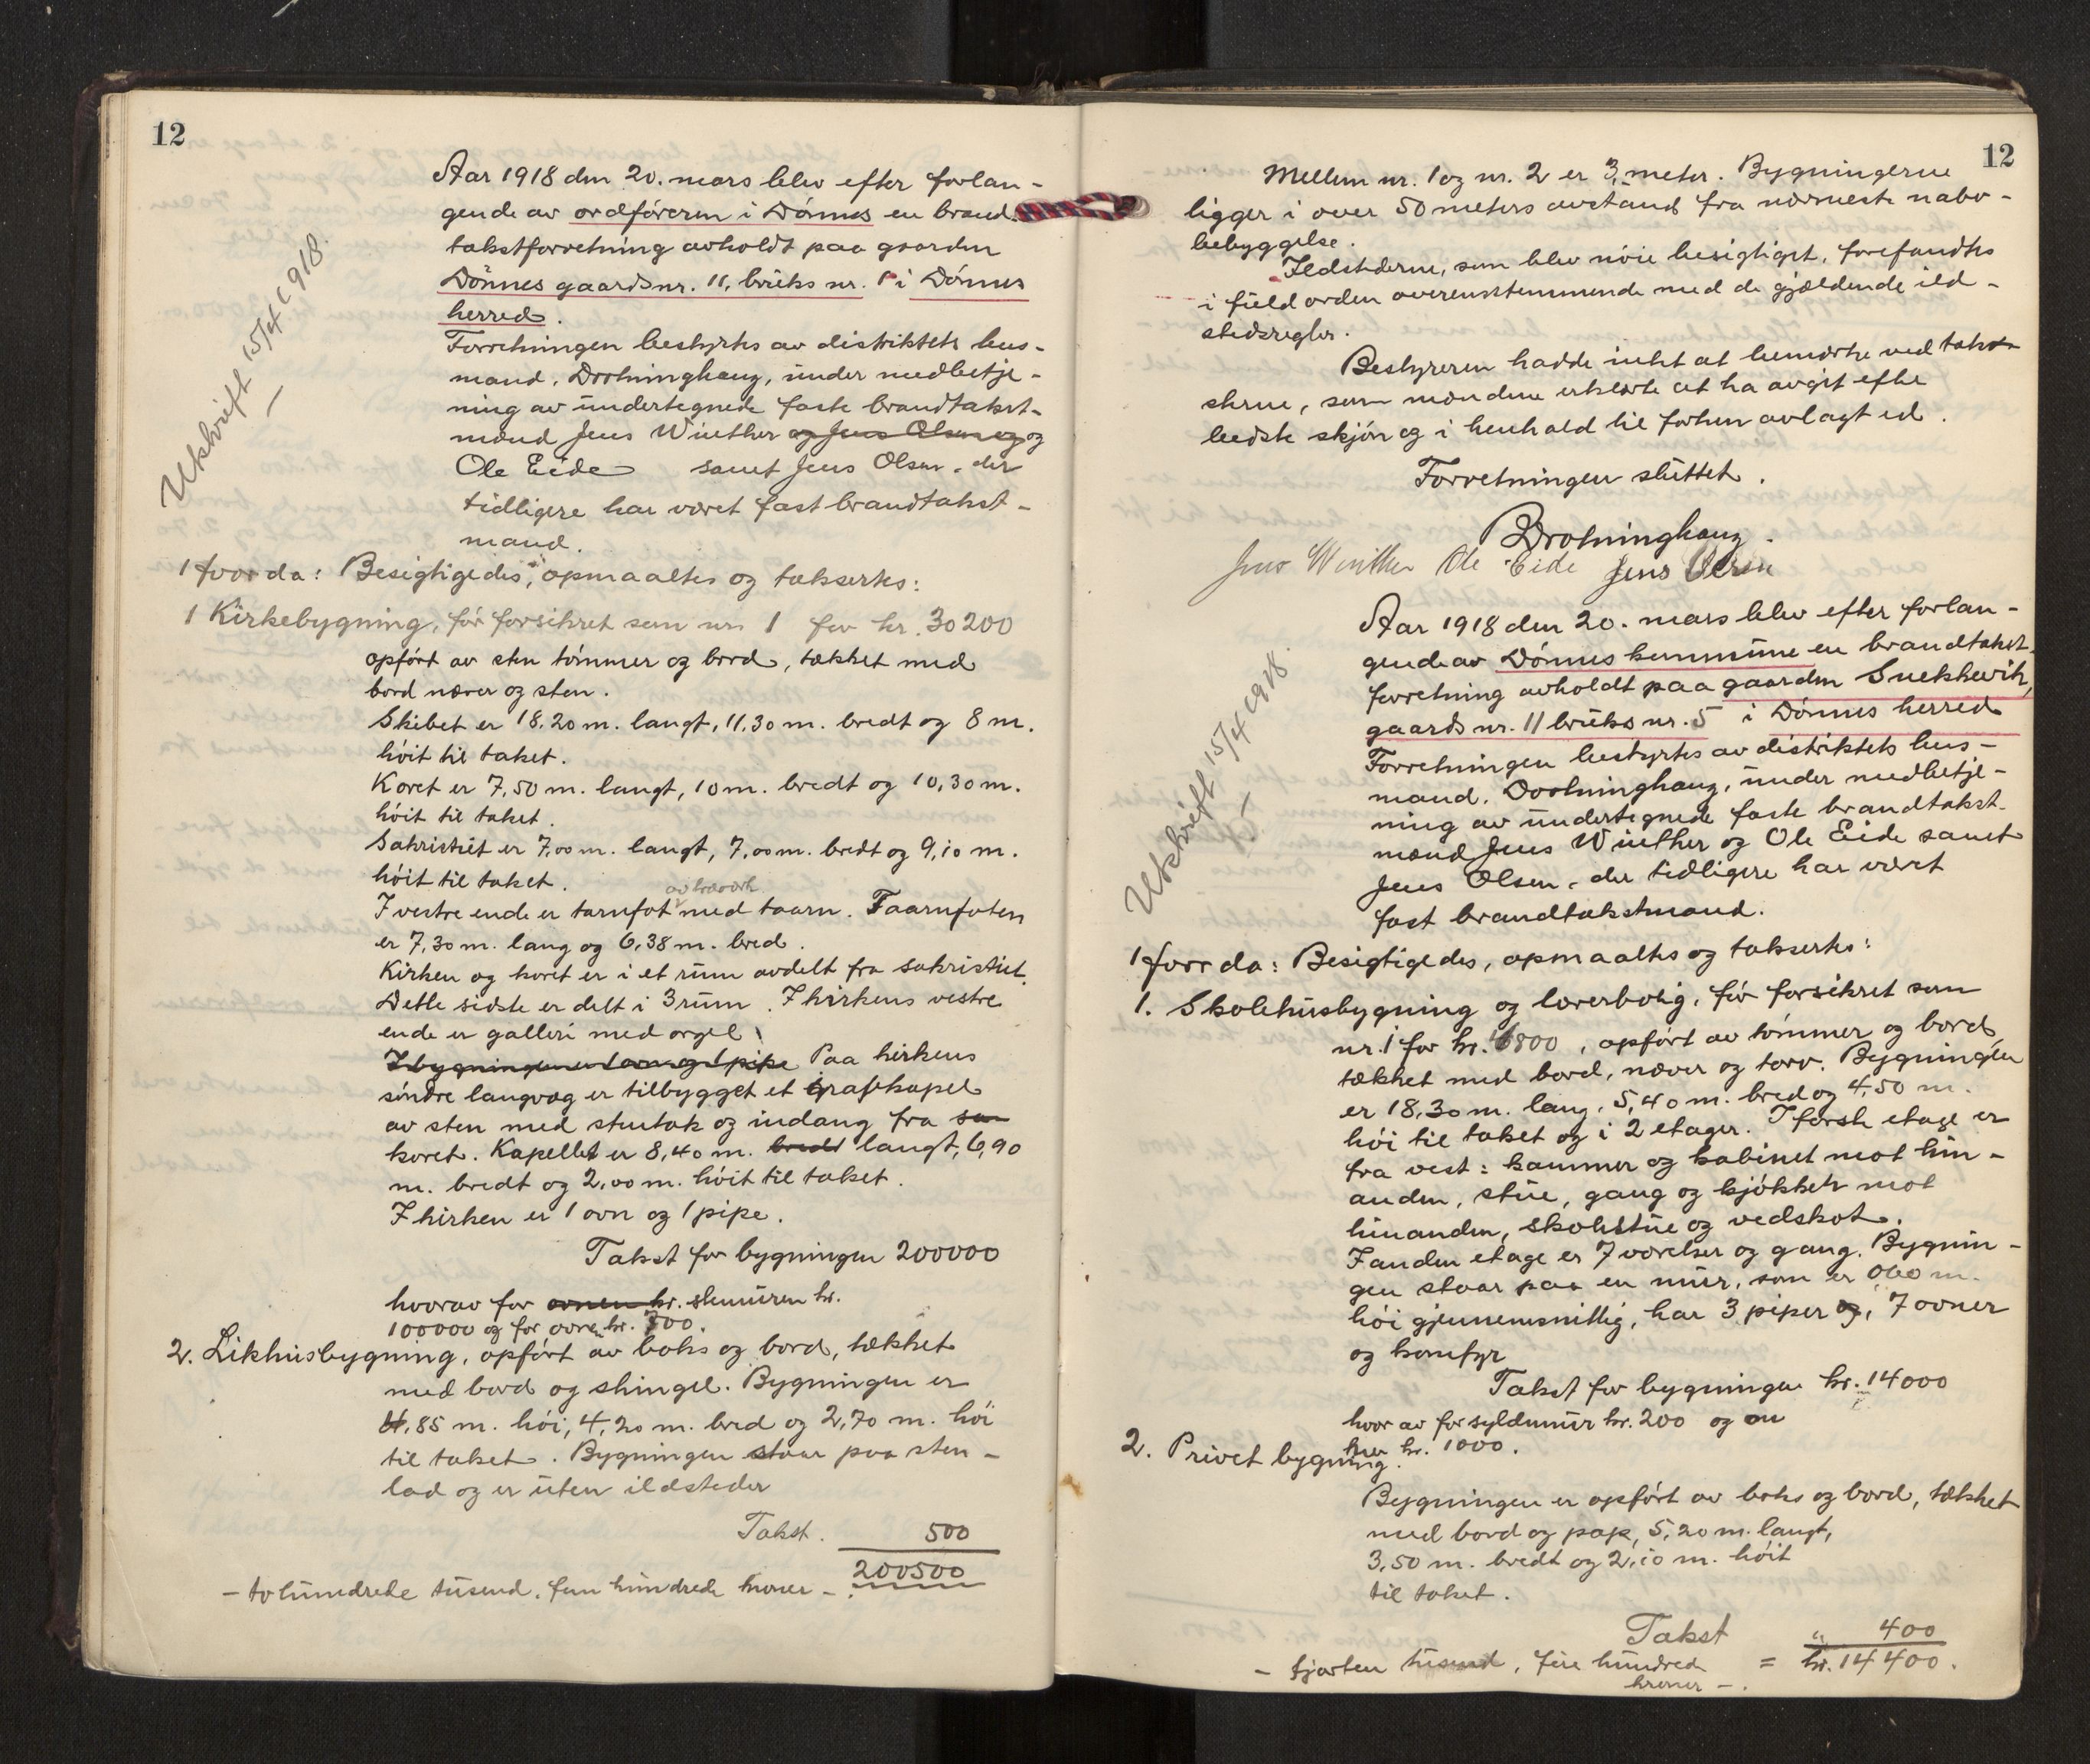 12
Utskrift 15/4 1918.
Aar 1918 den 20. mars blev efter forlan-
gende av ordföreren i Dönnes en brand-
takstforretning avholdt paa gaarden
Dönnes gaardsnr. 11, bruks nr. 1 i Dönnes
herred.
Forretningen bestyrtes av distriktets lens-
mand, Drotninghaug, under medbetje-
ning av undertegnede faste brandtakst-
mænd Jens Winther og Jens Olsen og og
Ole Eide samt Jens Olsen, der
tidligere har været fast brandtakst-
mand.
Hvorda: Besigtigedes, opmaaltes og taksertes:
1 Kirkebygning, för forsikret som nr. 1 for kr. 30200
opfört av sten tömmer og bord, tækket med
bord næver og sten.
Skibet er 18,20 m. langt, 11,30 m. bredt og 8 m.
höit til taket.
Koret er 7,50 m. langt, 10 m. bredt og 10,30 m.
höit til taket.
Sakristiet er 7,00 m. langt, 7,00 m. bredt og 9,10 m.
höit til taket.
av træverk
I vestre ende er tarnfot med taarn. Taarnfoten
er 7,30 m. lang og 6,38 m. bred.
Kirken og koret er i et rum avdelt fra sakristiet.
Dette sidste er delt i 3 rum. I kirkens vestre
ende er galleri med orgel.
I bygningen er 1 ovn og 1 pipe Paa kirkens
söndre langvæg er tilbygget et grafkapel
av sten med stentak og indgang fra sa
koret. Kapellet er 8,40 m. bredt langt, 6,90
m. bredt og 2,00 m. höit til taket.
I kirken er 1 ovn og 1 pipe.
Takst for bygningen 200000
hvorav for ovnen kr. stenmuren kr.
100000 og for ovnen kr. 300.
2. Likhusbygning, opfört av boks og bord, tækket
med bord og shingel. Bygningen er
4,85 m. höi, 4,20 m. bred og 2,70 m. höi
til taket. Bygningen staar paa sten-
lad og er uten ildsteder
Takst. 500
200500
- to hundrede tusend, fem hundrede kroner -.
12
Mellem nr. 1 og nr. 2 er 3 meter. Bygningerne
ligger i over 50 meters avstand fra nærmeste nabo-
bebyggelse.
Ildstederne, som blev nöie besigtiget, forefandtes
i fuld orden overenstemmende med de gjældende ild-
stedsregler.
Bestyreren hadde intet at bemerke ved takst
sterne, som mændene erklærte at ha avgit efter
bedste skjön og i henhold til forhen avlagt ed.
Forretningen sluttet.
Drotninghaug.
Jens Winther Ole Eide Jens Olsen
Utskrift 15/4 1918.
Aar 1918 den 20. mars blev efter forlan-
gende av Dönnes kommune en brandtakst-
forretning avholdt paa gaarden Snekkevik,
gaards nr. 11 bruks nr. 5 i Dönnes herred
Forretningen bestyrtes av distriktets lens-
mand, Drotninghaug, under medbetje-
ning av undertegnede faste brandtakst-
mænd Jens Winther og Ole Eide samt
Jens Olsen, der tidligere har været
fast brandtakstmand.
Hvorda: Besigtigedes, opmaaltes og taksertes:
1. Skolehusbygning og lærerbolig, för forsikret som
nr. 1 for kr. 6800, opfört av tömmer og bord,
tækket med bord, næver og torv. Bygningen
er 18,30 m. lang, 5,40 m. bred og 4,50 m.
höi til taket og i 2 etager. I förste etage er
fra vest: kammer og kabinet mot hin-
anden, stue, gang og kjökken mot
hinanden, skolestue og vedskot.
I anden etage er 7 værelser og gang. Bygnin-
gen staar paa en mur, som er 0,60 m.
höi gjennemsnitlig, har 3 piper og, 7 ovner
og komfyr
Takst for bygningen kr. 14000
hvor av for syldmur kr. 200 og ov
nen kr. 1000.
2. Privetbygning.
Bygningen er opfört av boks og bord, tækket
med bord og pap, 5,20 m. langt,
3,50 m. bredt og 2,10 m. höit
til taket.
Takst " 400
- fjorten tusend, fire hundrede = kr. 14400.
kroner -.